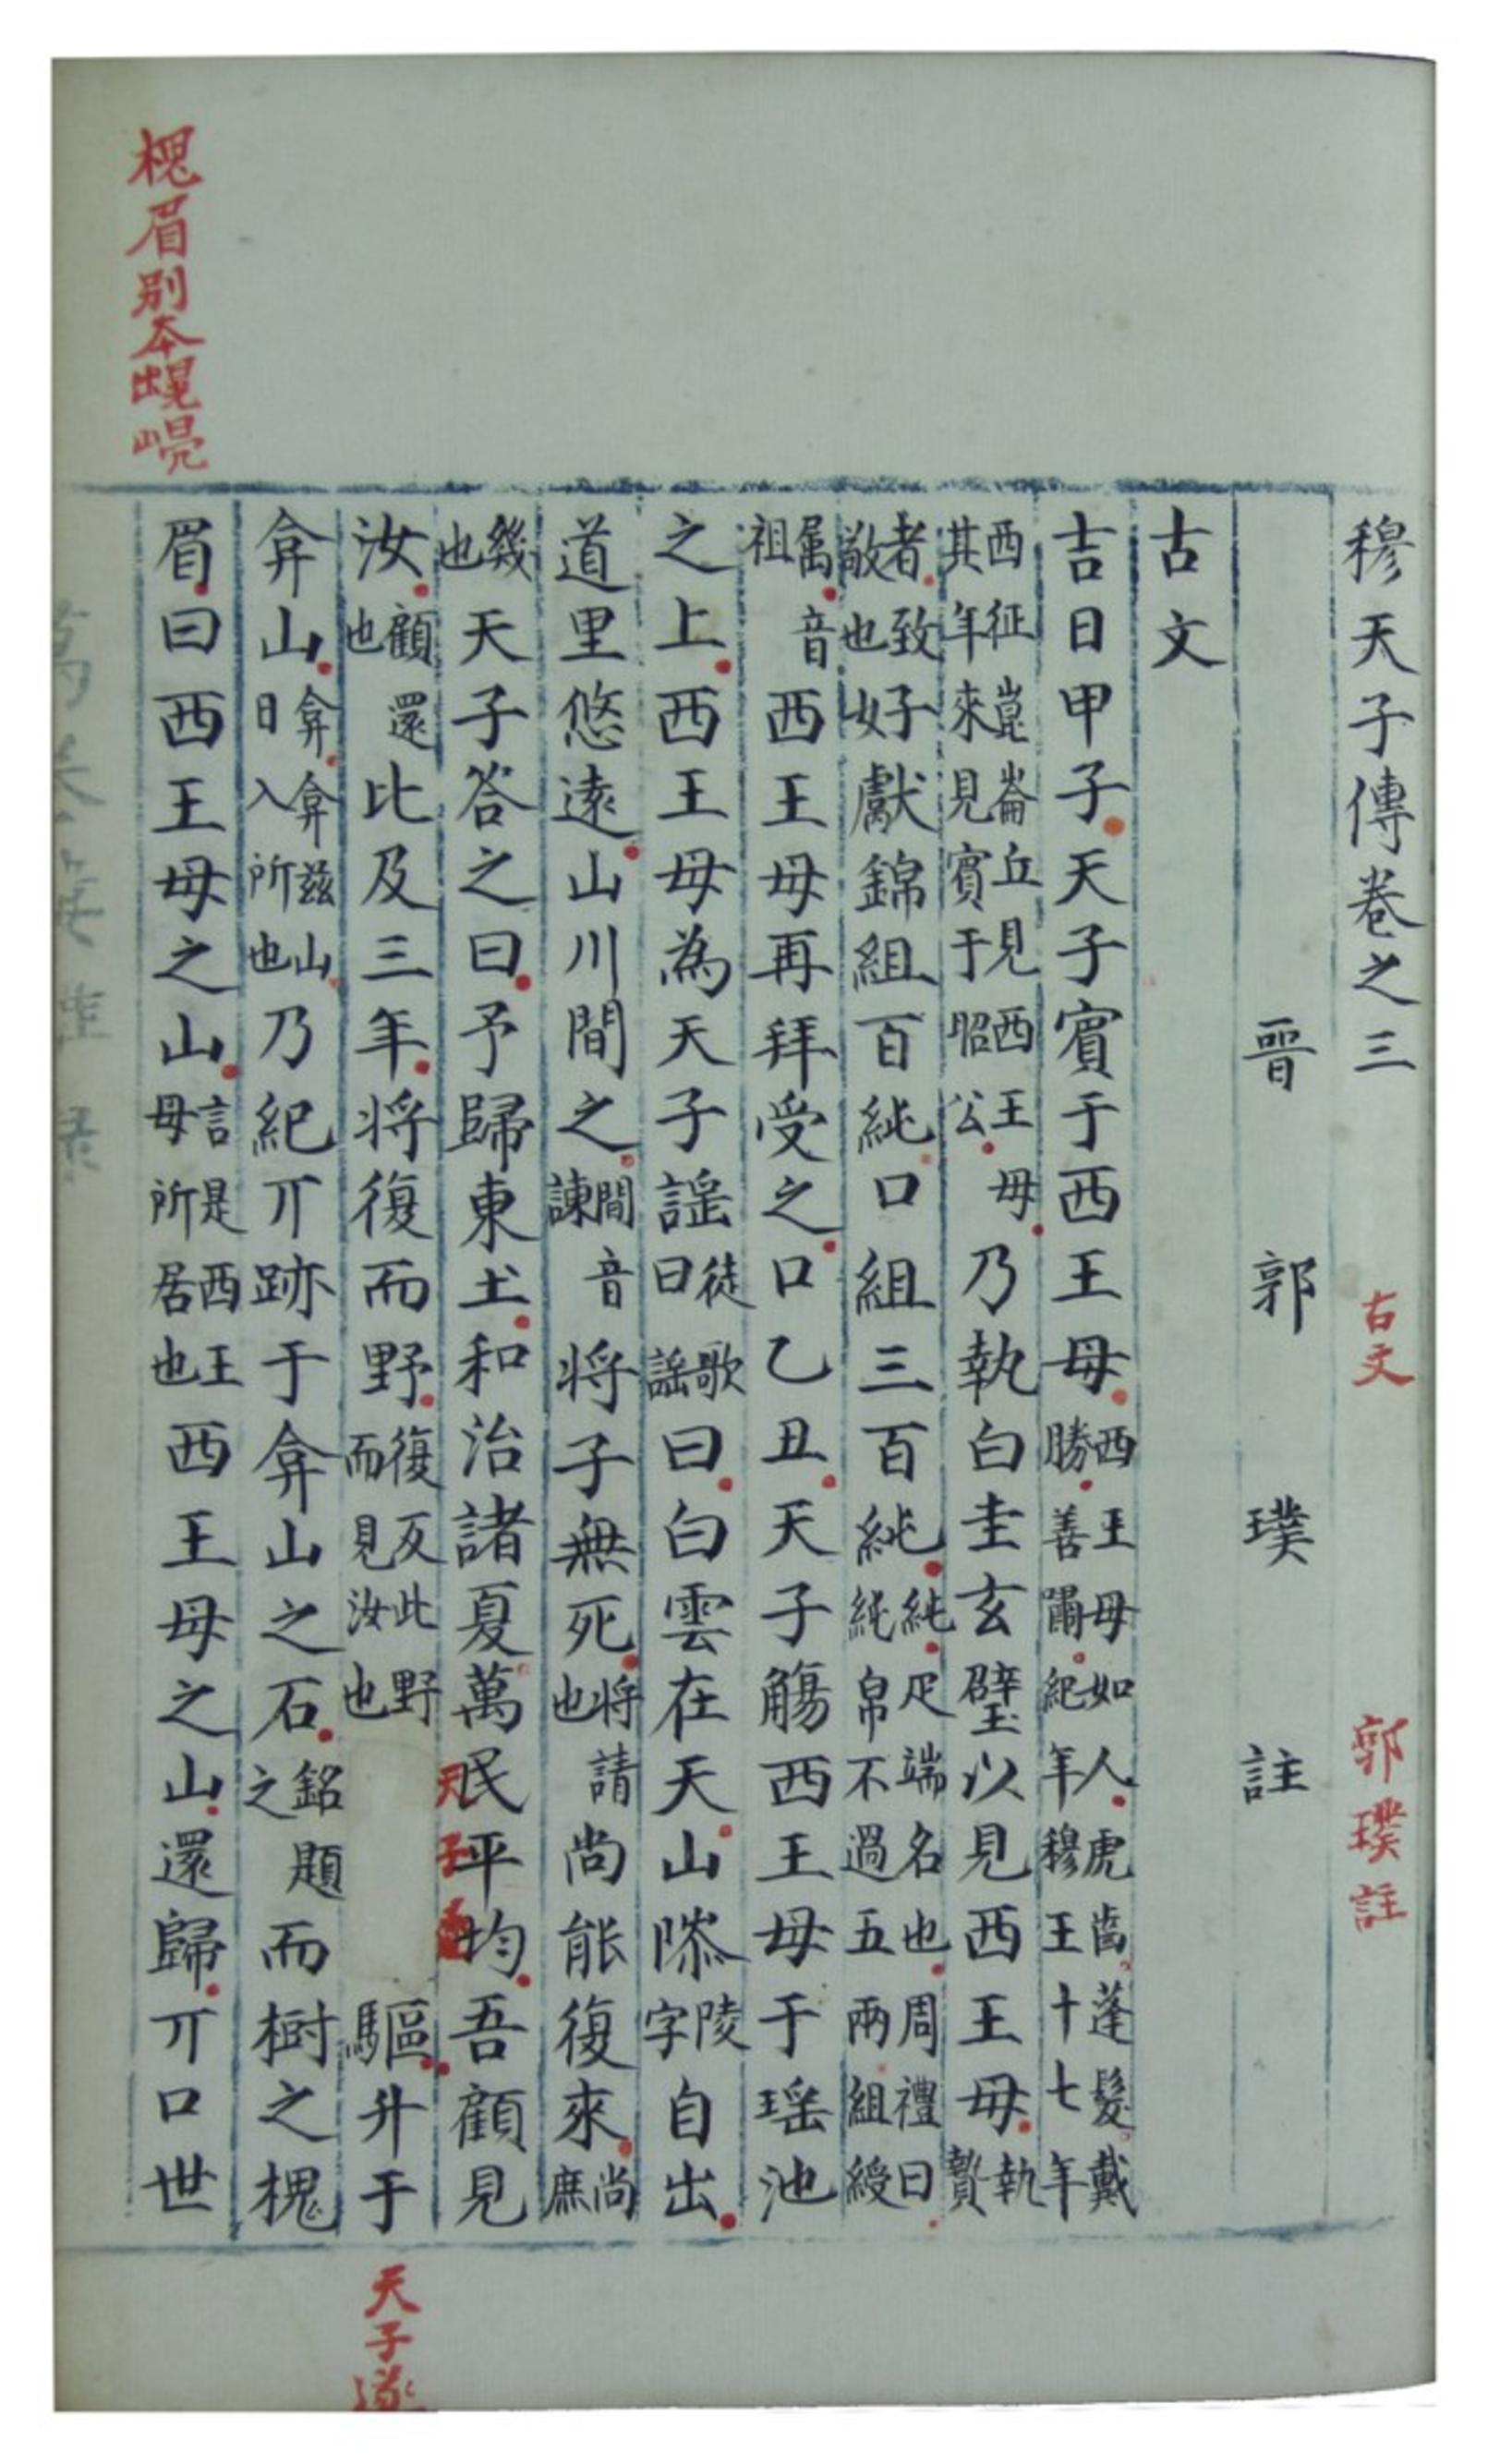 穆天子傳卷之三 古文 郭璞註
晉 郭 璞 註
古文
吉日甲子天子賓于西王母西王母如人虎齒蓬髮戴勝善嘯紀年穆王十七年
西征崑崙丘見西王母其年來見賓于昭公乃執白圭玄璧以見西王母執贄
者致敬也好獻錦組百純口組三百純純疋端名也周禮曰純帛不過五兩組綬
属音祖西王母再拜受之口乙丑天子觴西王母于瑶池
之上西王母為天子謡徒歌曰謡曰白雲在天山䧙陵字自出
道里悠遠山川間之間音諫將子無死將請也尚能復來尚庶
幾也天子答之曰予歸東土和治諸夏萬民平均吾顧見
汝顧還也比及三年將復而野復反此野而見汝也驅升于
弇山弇弇兹山日入所也乃紀丌跡于弇山之石銘題之而樹之槐
眉曰西王母之山言是西王母所居也西王母之山還歸丌口世
槐眉別本
天子遂